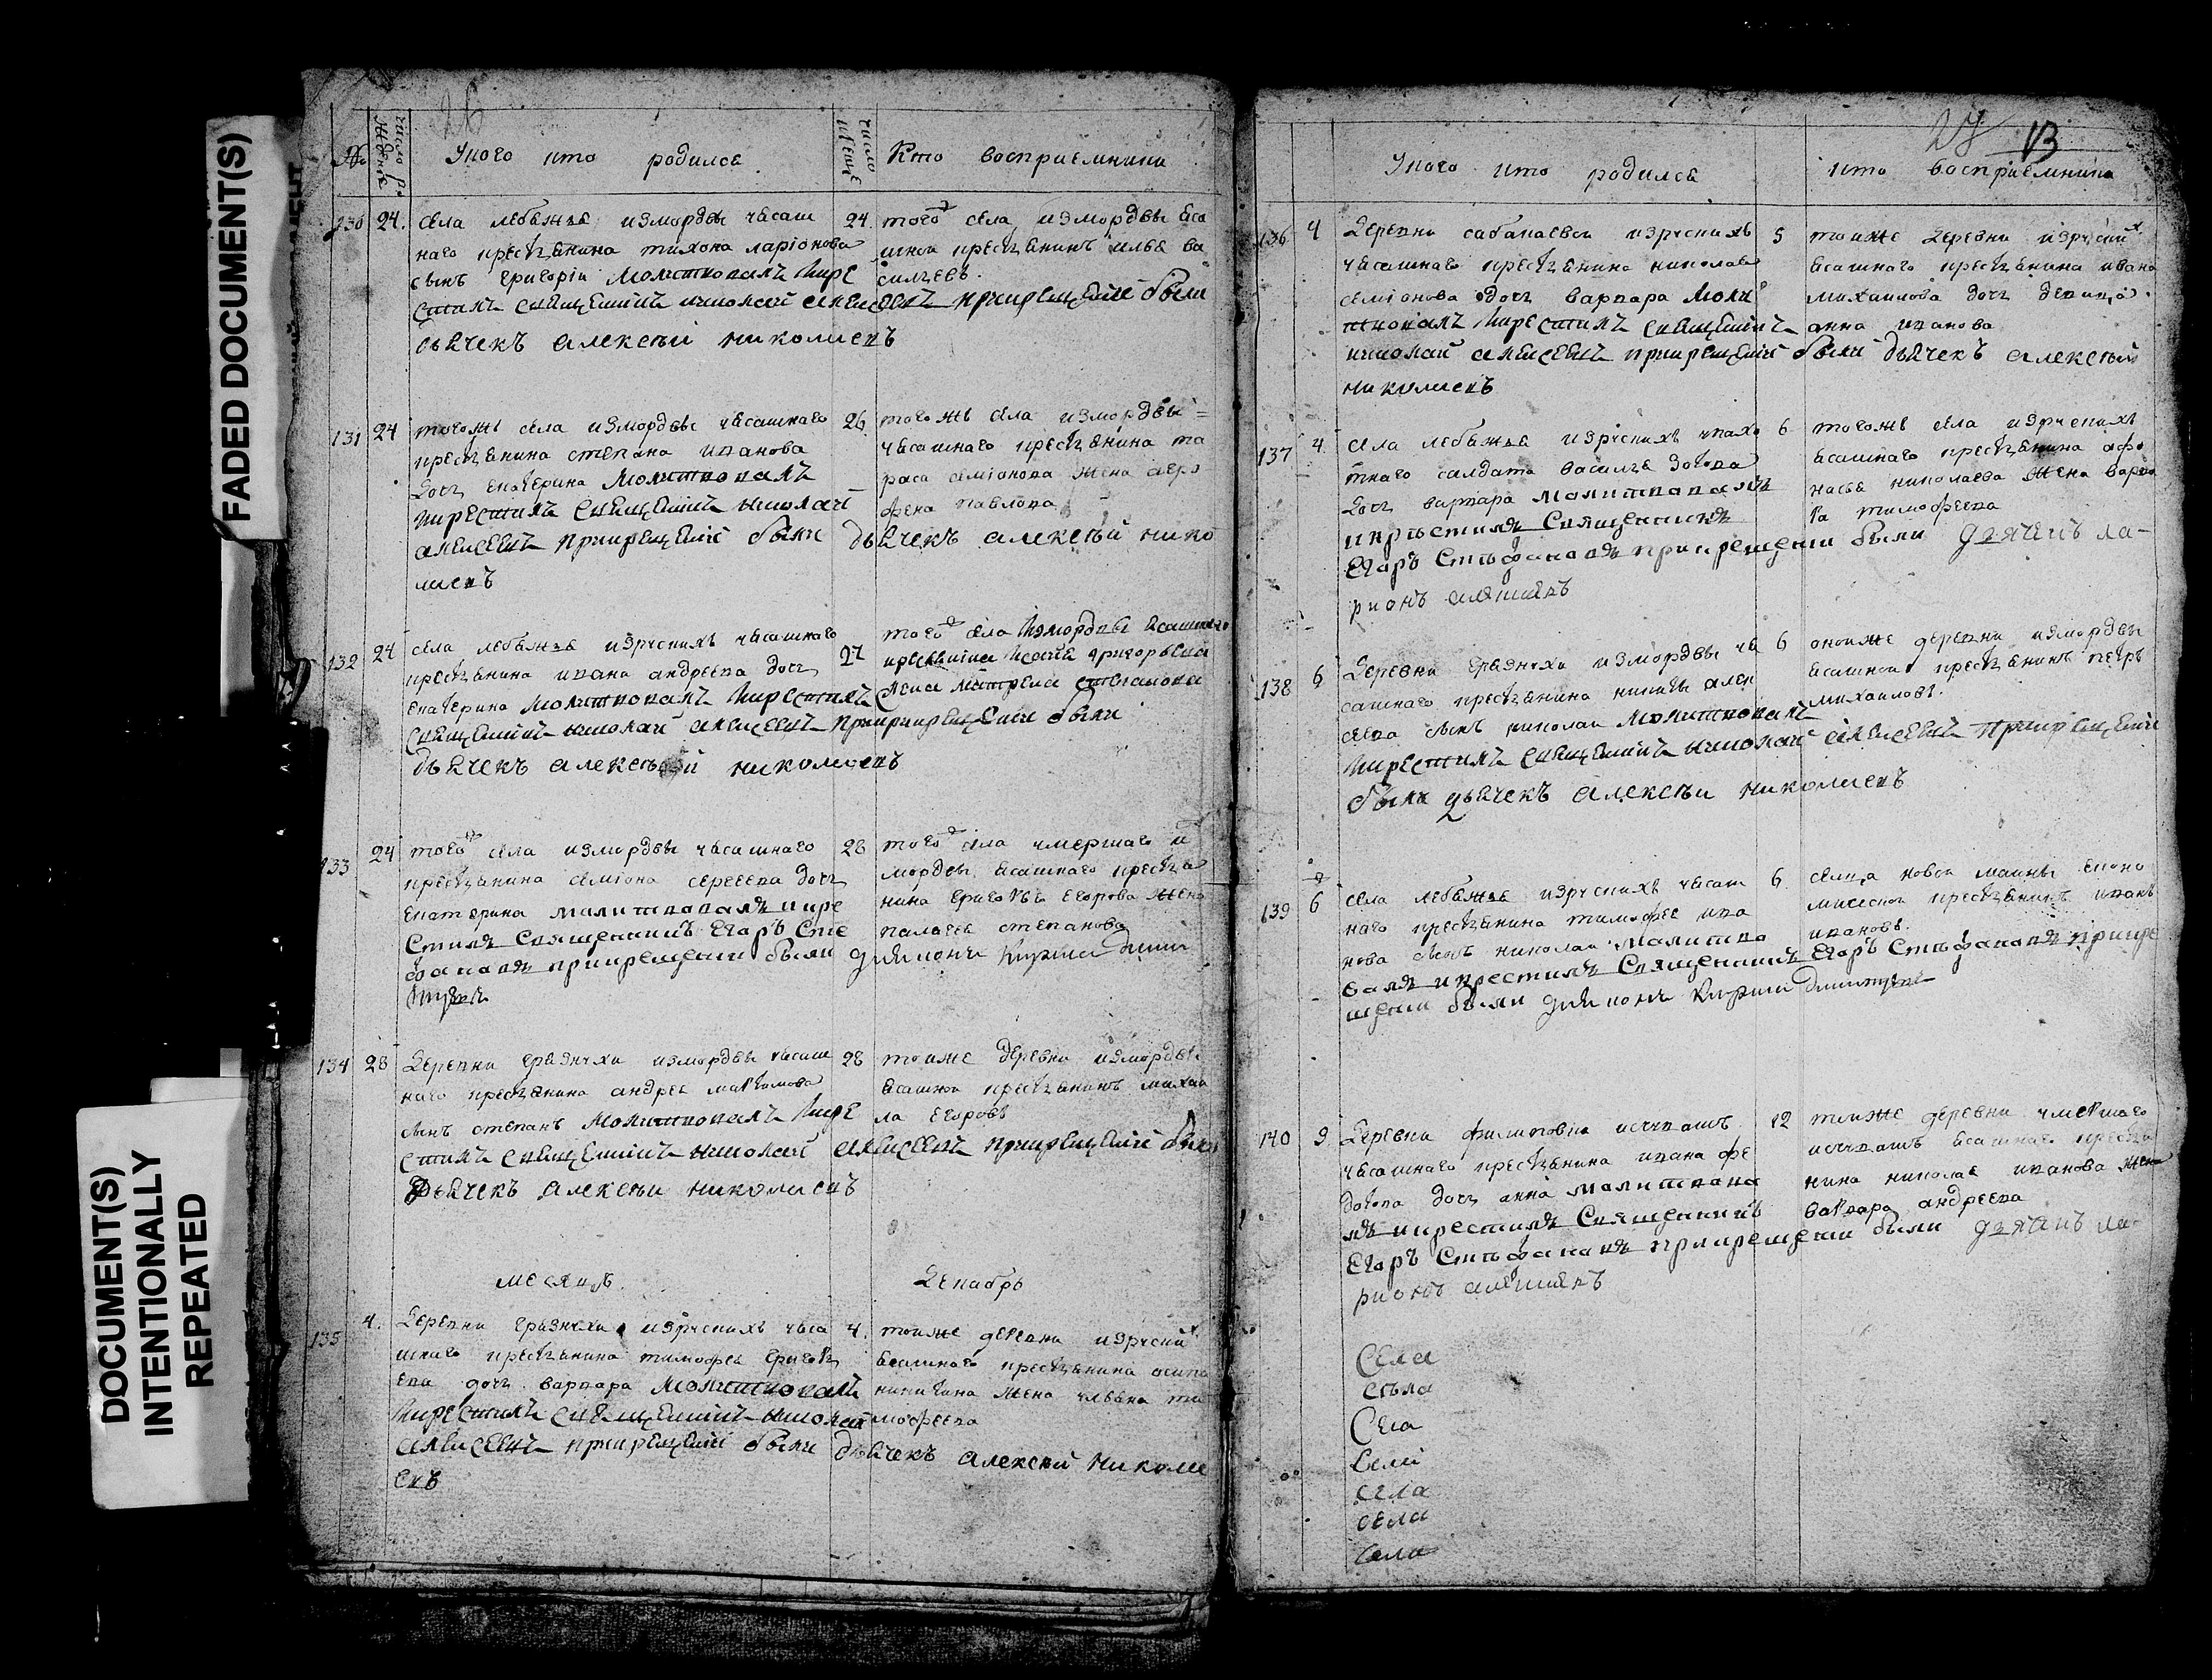 FADED DOCUMENT(S)
DOCUMENT(S)
INTENTIONALLY
REPEATED
26
№
число рождение
У кого кто родился
число крещение
Кто восприемники
130 24.
села лебяжья из мордвы ясаш
наго крестьянина тихона ларионова
сынъ григорiи молитвовалъ и кре
стилъ священникъ николай алексеевъ при крещенiе были
дьячекъ алексѣй николаевъ
24.
того села из мордвы яса
шной крестьянинъ илья ва
сильевъ.
131 24
того жъ села из мордвы ясашнаго
крестьянина степана иванова
дочь екатерина молитвовалъ
и крестилъ священникъ николай
алексеевъ при крещенiе были дьячекъ алексѣй нико
лаевъ
26
того жъ села из мордвы
ясашнаго крестьянина та
раса семiонова жена агро
фена павлова
132 24
села лебяжья изрускихъ ясашнаго
крестьянина ивана андреева дочь
екатерина молитвовалъ и крестилъ
священникъ николай алексеевъ при крещенiе были
дьячекъ алексѣй николаевъ
27
того села из мордвы ясашнаго
крестьянина григорьева
жена матрена степанова
133 24
того села из мордвы ясашнаго
крестьянина семiона сергеева дочь
екатерина молитвовалъ и кре
стилъ священникъ Егоръ Сте
фановъ при крещении были
28
того села умершаго из
мордвы ясашнаго крестья
нина григорья егорова жена
палагея степанова
134 28
деревни грязнухи из мордвы ясаш
наго крестьянина андрея максимова
сынъ степанъ молитвовалъ и кре
стилъ священникъ николай алексеевъ при крещенiе были
дьячекъ алексѣи николаевъ
28
тоиже деревни из мордвы
ясашнои крестьянинъ михаи
ла егоровъ
месяцъ декабрь
135 4.
деревни грязнухи изрускихъ ясa
шнаго крестьянина тимофея григорь
ева дочь варвара молитвовалъ
и крестилъ священникъ николай
алексеевъ при крещенiе были дьячекъ алексѣй николае
евъ
4.
тоиже деревни изрускихъ
ясашнаго крестьянина осипа
никитина жена ульяна ти
мофеева
27 13
У кого кто родился
кто восприемники
136 4
деревни сабакаевои изрускихъ
ясашнаго крестьянина николая
семiонова дочь варвара моли
твовалъ и крестилъ священникъ
николай алексеевъ при крещенiе были дьячекъ алексѣй
николаевъ
5
тоиже деревни изруских
ясашнаго крестьянина ивана
михаилова дочь девица
анна иванова
137 4
села лебяжья изрускихъ пахо
тнаго салдата василья зотова
дочь варвара молитвовалъ
и крѣстилъ священникъ
Егоръ Стефановъ при крещении были дьячекъ ла-
рионъ
6
тогожъ села изрускихъ
ясашнаго крестьянина афо
насья николаева жена варва
ра тимофеева
138 6
деревни грязнухи из мордвы яс
сашнаго крестьянина никиты алек
сеева сынъ николаи молитвовалъ
и крестилъ священникъ николай алексеевъ при крещенiе
были дьячекъ алексѣи николаевъ
6
оноиже деревни из мордвы
ясашнои крестьянинъ петръ
михаиловъ.
139 6
села лебяжья изрускихъ ясаш
наго крестьянина тимофея ива
нова сынъ николаи молитво
валъ и крестилъ священникъ Егоръ Стефановъ при кре
щении были
6
сельца новои маины еконо
мическои крестьянинъ иванъ
ивановъ.
140 9
деревни филиповки исчувашъ
ясашнаго крестьянина ивана фе
дотова дочь анна молитвова
лъ и крестилъ священникъ
Егоръ Стефановъ при крещении были дьячекъ ла-
рионъ
12
тоиже деревни умершаго
исчувашъ ясашнаго крестья
нина николая иванова жена
варвара андреева
Села
сѣла
Села
Села
села
села
села